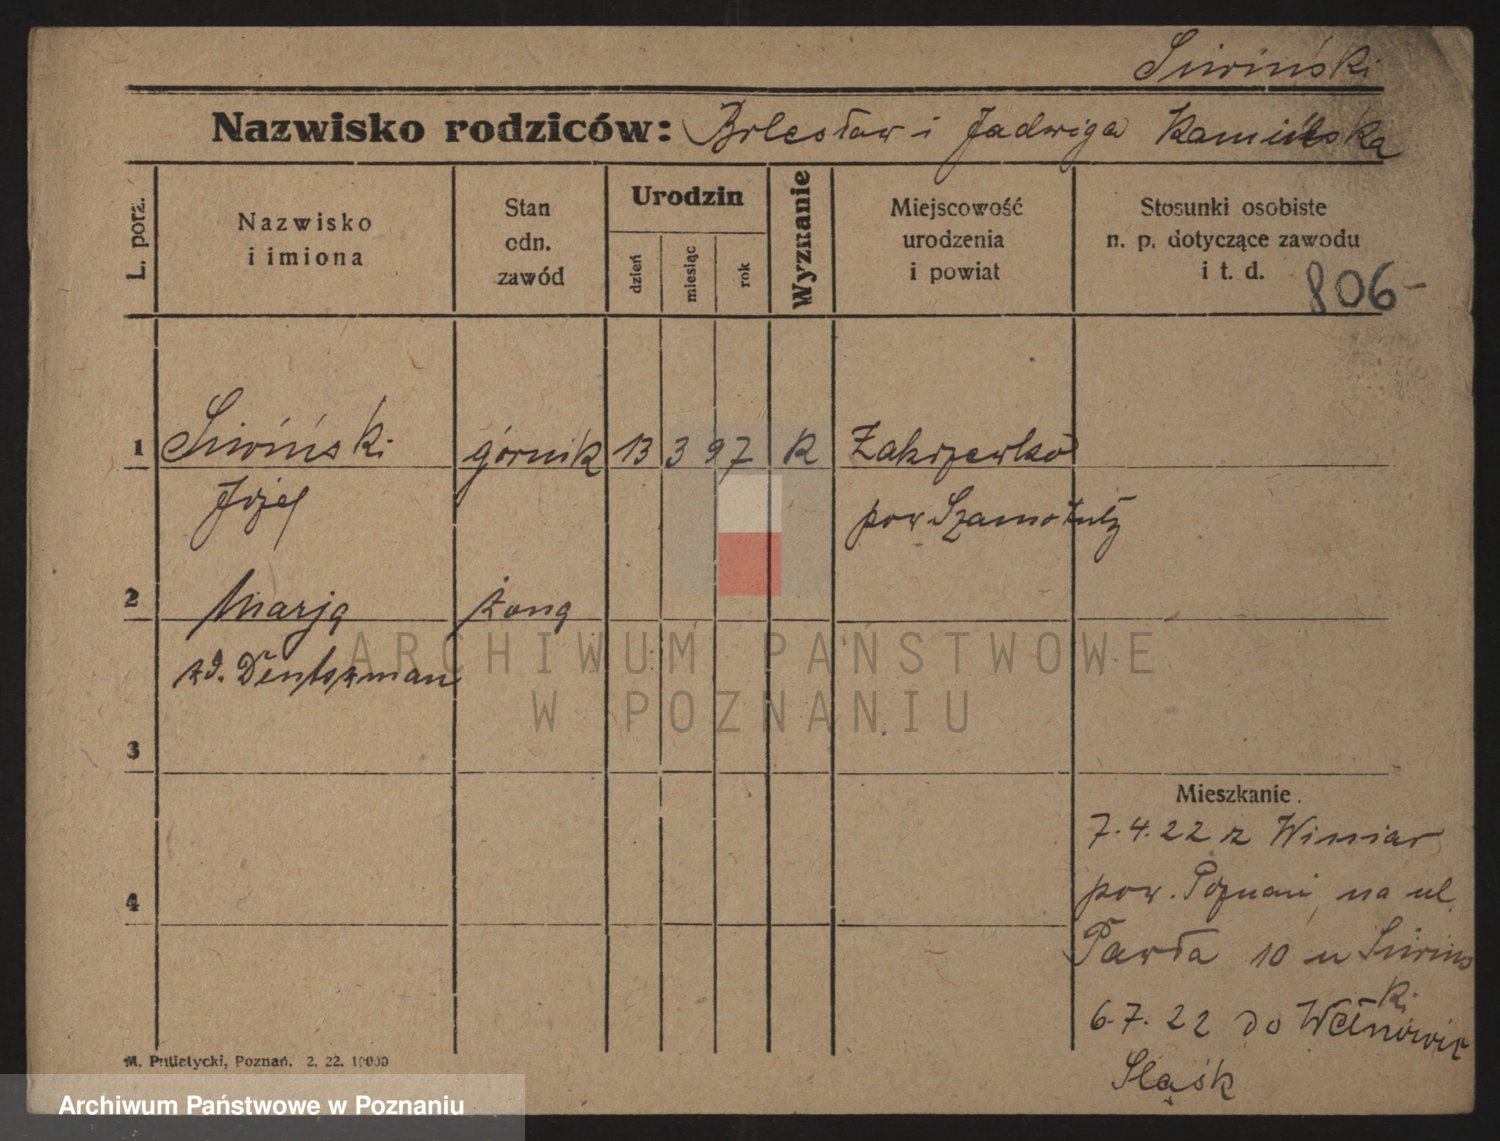 Siwiński
Nazwisko rodziców: Bolesław i Jadwiga Kamińska
L. porz.
Nazwisko
i imiona
Stan
odn.
zawód
Urodzin
dzień
miesiąc
rok
Wyznanie
Miejscowość
urodzenia
i powiat
Stosunki osobiste
n. p. dotyczące zawodu
i t. d.
806
1 Siwiński górnik 13 3 97 K Zakrzewko
Józef pow Szamotuły
2 Marja żona
zd.
3
Mieszkanie.
7.4.22 z Winiar
pow. Poznań na ul.
Pawła 10 u Siwińs
ki
4
6.7.22 do Wełnowic
Śląsk
M. Putiatycki, Poznań. 2. 22. 10000
ARCHIWUM PAŃSTWOWE
W POZNANIU
Archiwum Państwowe w Poznaniu